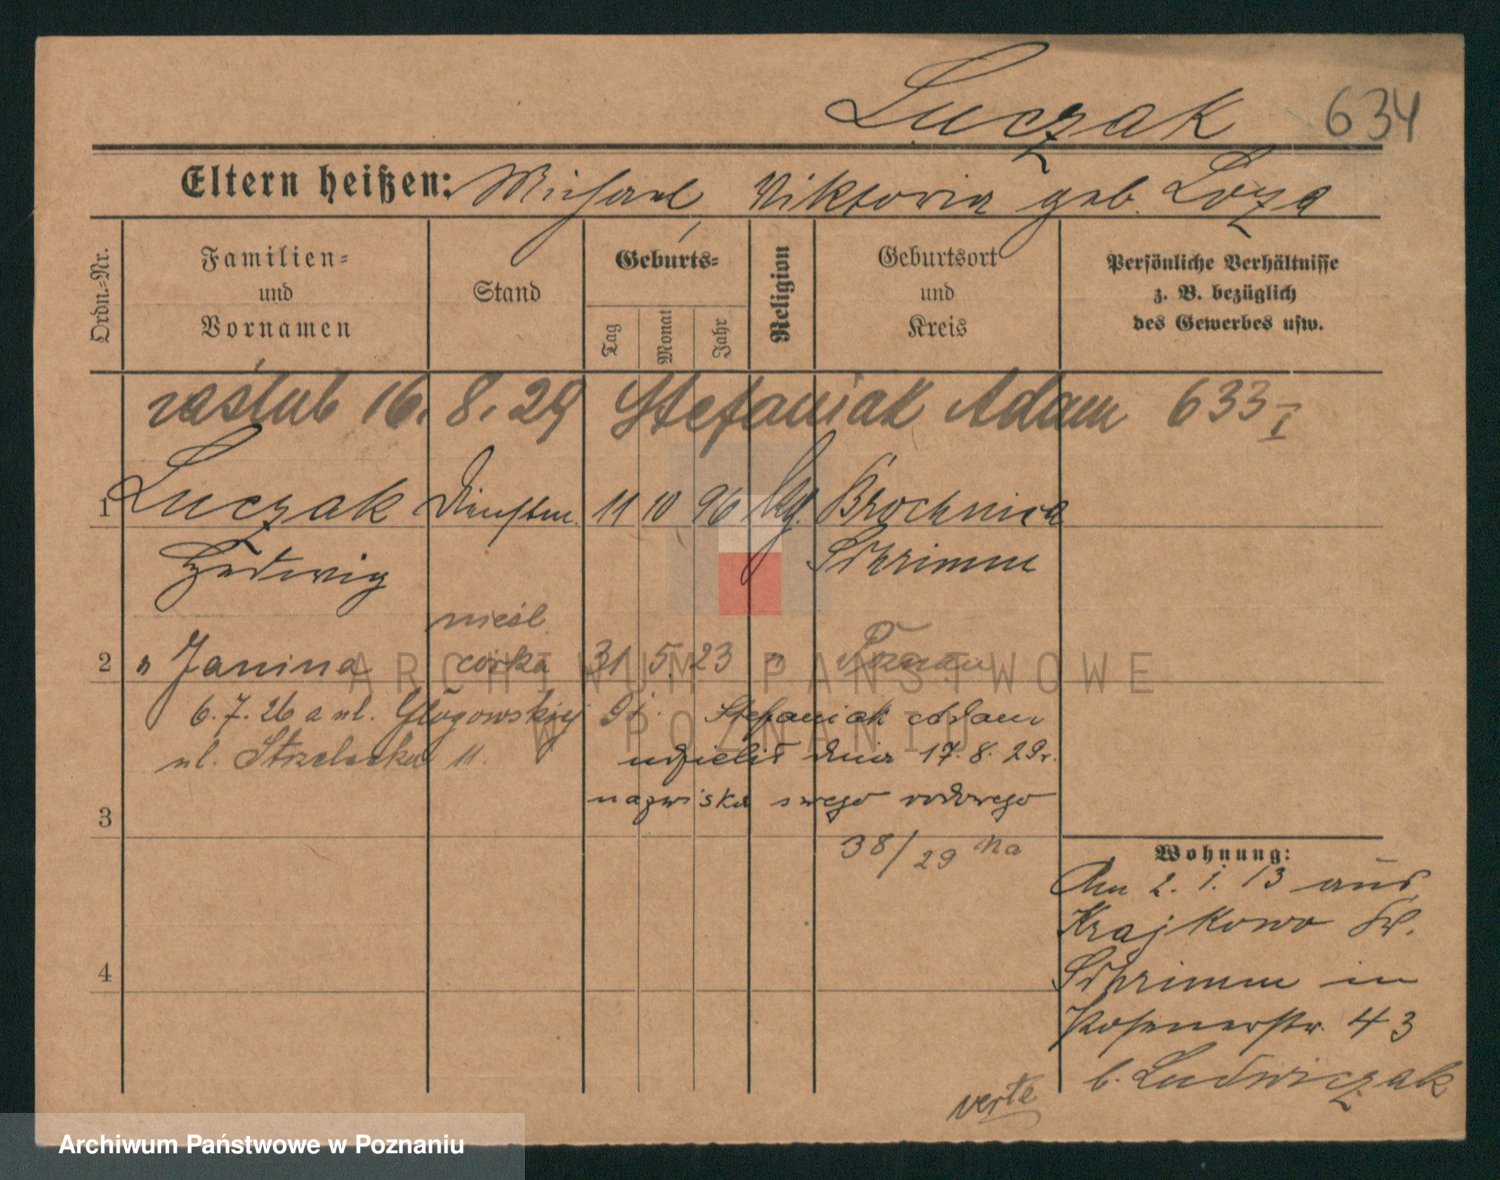 Luczak 634
Eltern heißen: Michael, Viktoria geb. Loza
Ordn.-Nr.
Familien- und Vornamen
Stand
Geburts-
Tag
Monat
Jahr
Religion
Geburtsort und Kreis
Persönliche Verhältnisse z. B. bezüglich des Gewerbes usw.
zaślub 16. 8. 29 Stefaniak Adam 633 I
1 Luczak Dienstm. 11 10 96 kg. Brochnica
Hedwig Schrimm
nieśl.
2 " Janina córka 31 5. 23 " Poznań
6. 7. 26 a ul. Głogowskiej 91. Stefaniak Adam
ul. Strzelecka 11. udzielił dnia 17. 8. 29r.
3 nazwiska swego rodowego
38/29 Na
4
Wohnung:
Am 2. 1. 13 aus
Krajkowo Kr.
Schrimm in
Posenerstr. 43
b. Ludwiczak
verte
ARCHIWUM PAŃSTWOWE
W POZNANIU
Archiwum Państwowe w Poznaniu